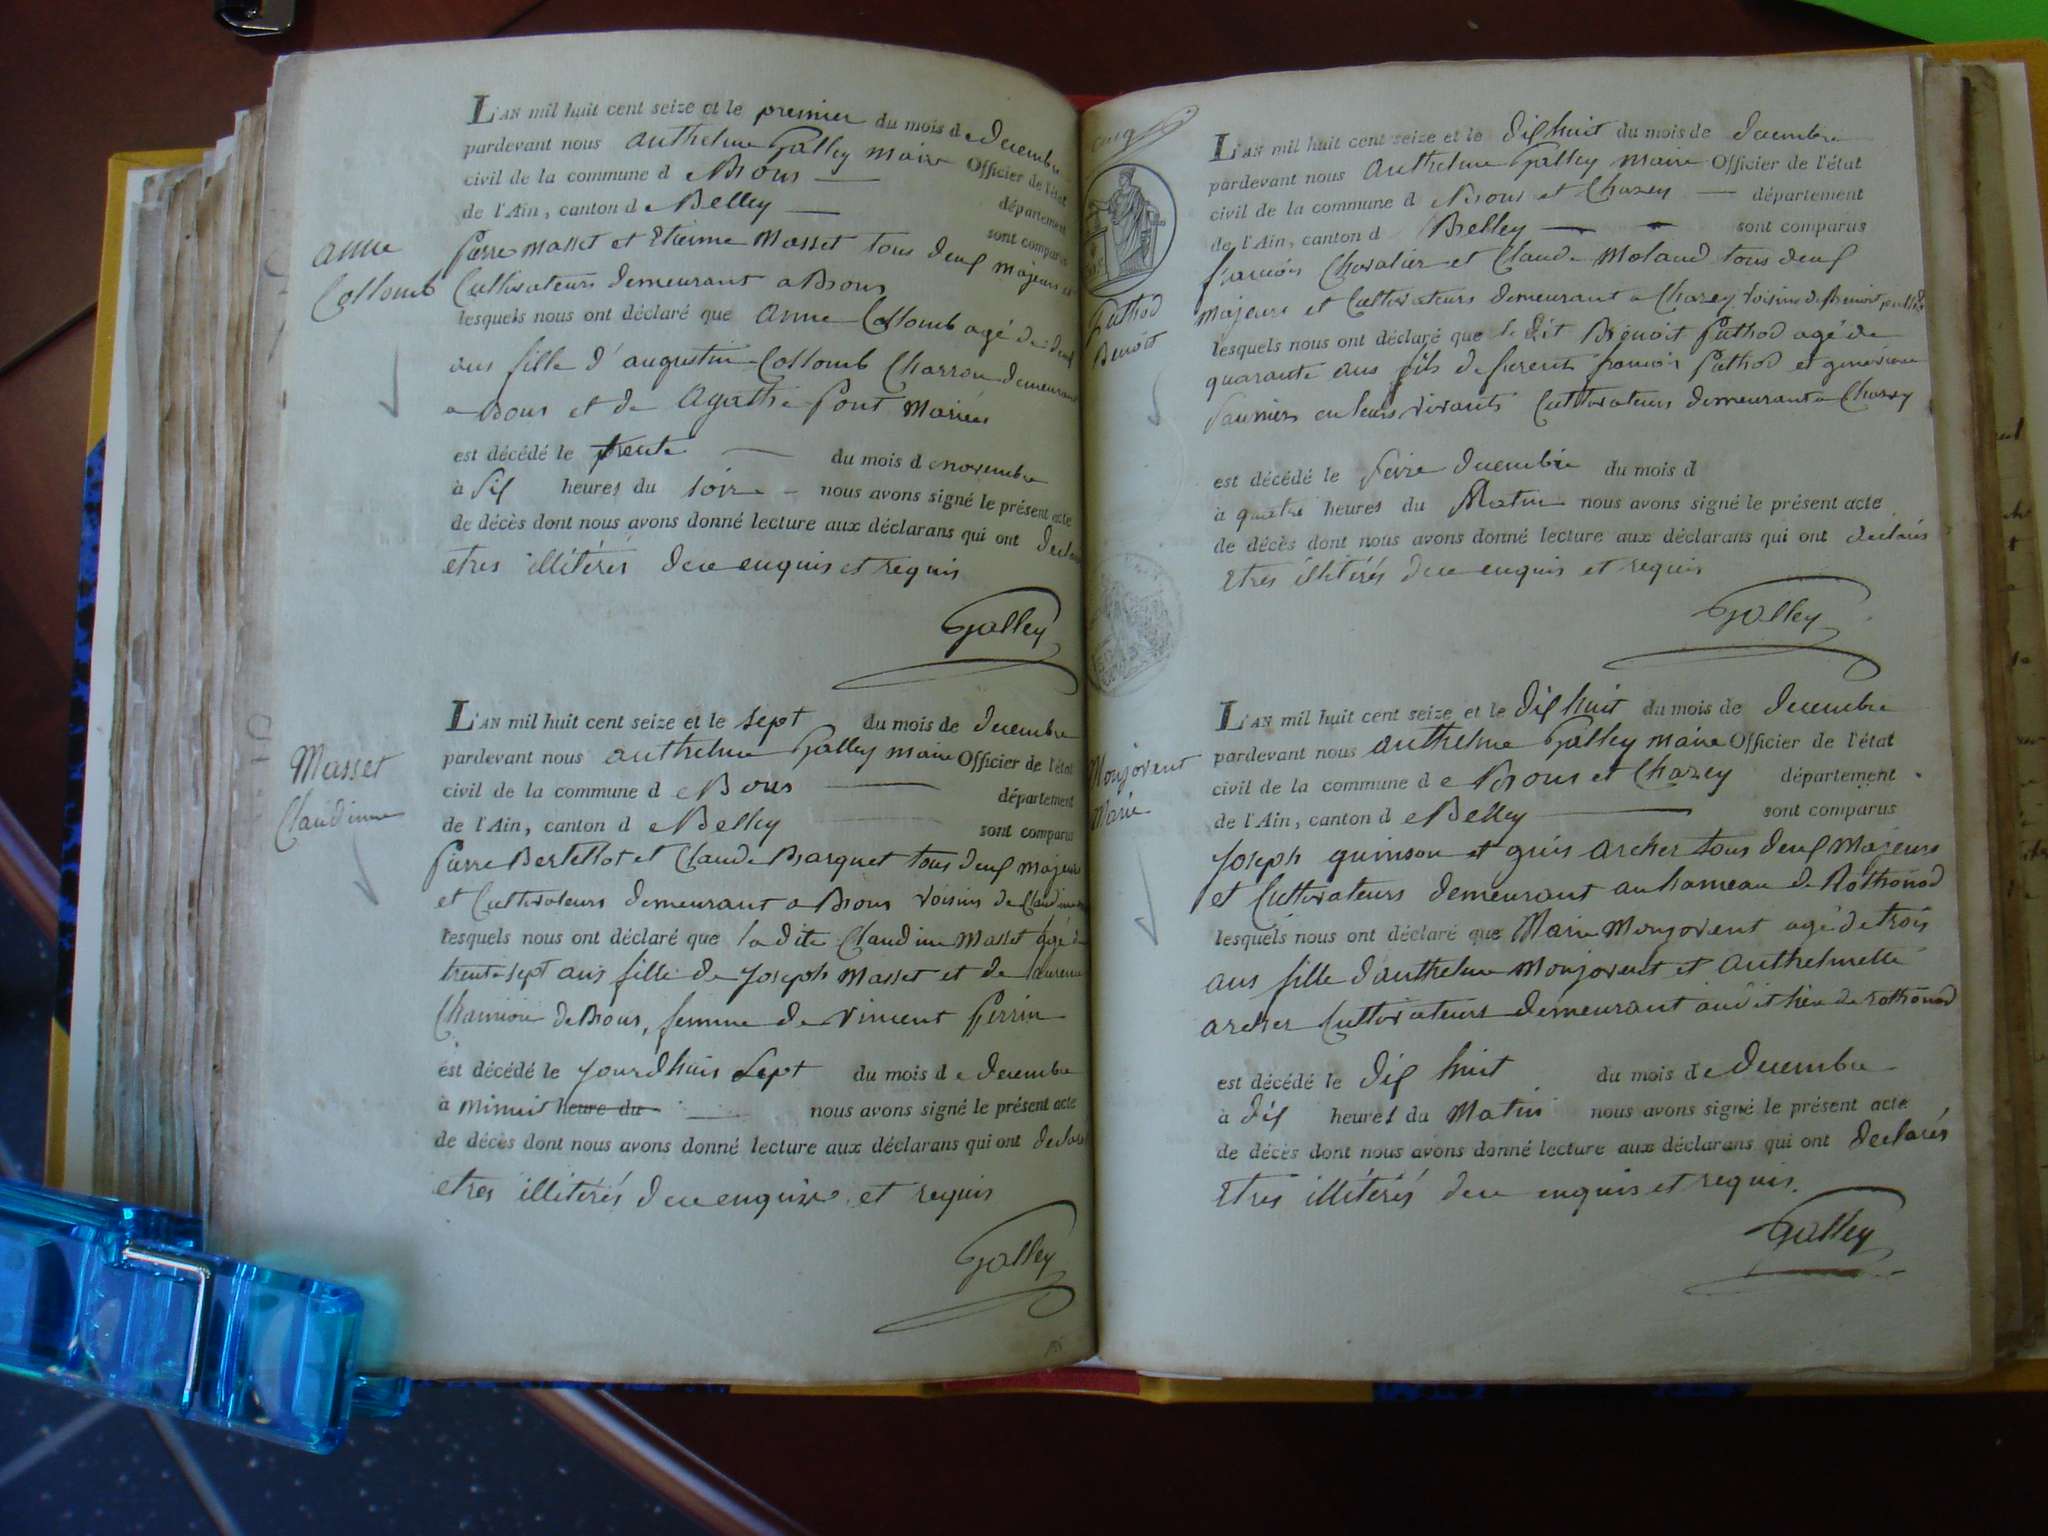 L'AN mil huit cent seize et le premier du mois de decembre
pardevant nous anthelme Galley maire Officier de l'état
civil de la commune d e Brens département
de l'Ain, canton d e Belley sont comparus
pierre Masset et Etienne Masset tous deux majeurs et
Cultivateurs demeurant a Brens
lesquels nous ont déclaré que anne Collomb agé de deux
ans fille d'augustin Collomb Charron demeurant
a Brens et de Agathe pont Mariés
est décédé le trente du mois d e novembre
à six heures du soire nous avons signé le présent acte
de décès dont nous avons donné lecture aux déclarans qui ont declarés
etres illitérés de ce enquis et requis
Galley
anne
Collomb
L'AN mil huit cent seize et le sept du mois de decembre
pardevant nous anthelme Galley maire Officier de l'état
civil de la commune d e Brens département
de l'Ain, canton d e Belley sont comparus
pierre Bertellot et Claude Barquet tous deux majeurs
et Cultivateurs demeurant a Brens voisins de Claudinne
lesquels nous ont déclaré que la dite Claudinne Masset agé de
trente sept ans fille de joseph Masset et de
de Brens, femme de vincent perrin
est décédé le jourdhuis sept du mois d e decembre
à minuit heure du nous avons signé le présent acte
de décès dont nous avons donné lecture aux déclarans qui ont declarés
etres illitérés de ce enquis et requis
Galley
Masset
Claudinne
L'AN mil huit cent seize et le dix huit du mois de decembre
pardevant nous anthelme Galley maire Officier de l'état
civil de la commune d e Brens et Chazey département
de l'Ain, canton d Belley sont comparus
francois Chevalier et Claude Molaud tous deux
majeurs et Cultivateurs demeurant a Chazey voisins de Benoit
lesquels nous ont déclaré que le dit Benoit puthod agé de
quarante ans fils de francois puthod et
en leurs vivants Cultivateurs demeurant a Chazey
est décédé le seize decembre du mois d
à quatre heures du Matin nous avons signé le présent acte
de décès dont nous avons donné lecture aux déclarans qui ont declarés
etres illitérés de ce enquis et requis
Galley
puthod
Benoit
L'AN mil huit cent seize et le dix huit du mois de decembre
pardevant nous anthelme Galley maire Officier de l'état
civil de la commune d e Brens et Chazey département
de l'Ain, canton d e Belley sont comparus
joseph guinson et archer tous deux Majeurs
et Cultivateurs demeurant au hameau de Rothonod
lesquels nous ont déclaré que Marie Monjovent agé de trois
ans fille d'anthelme Monjovent et anthelmette
archer Cultivateurs demeurant audit lieu de rothonod
est décédé le dix huit du mois d e decembre
à dix heures du Matin nous avons signé le présent acte
de décès dont nous avons donné lecture aux déclarans qui ont declarés
etres illitérés de ce enquis et requis.
Galley
Monjovent
Marie